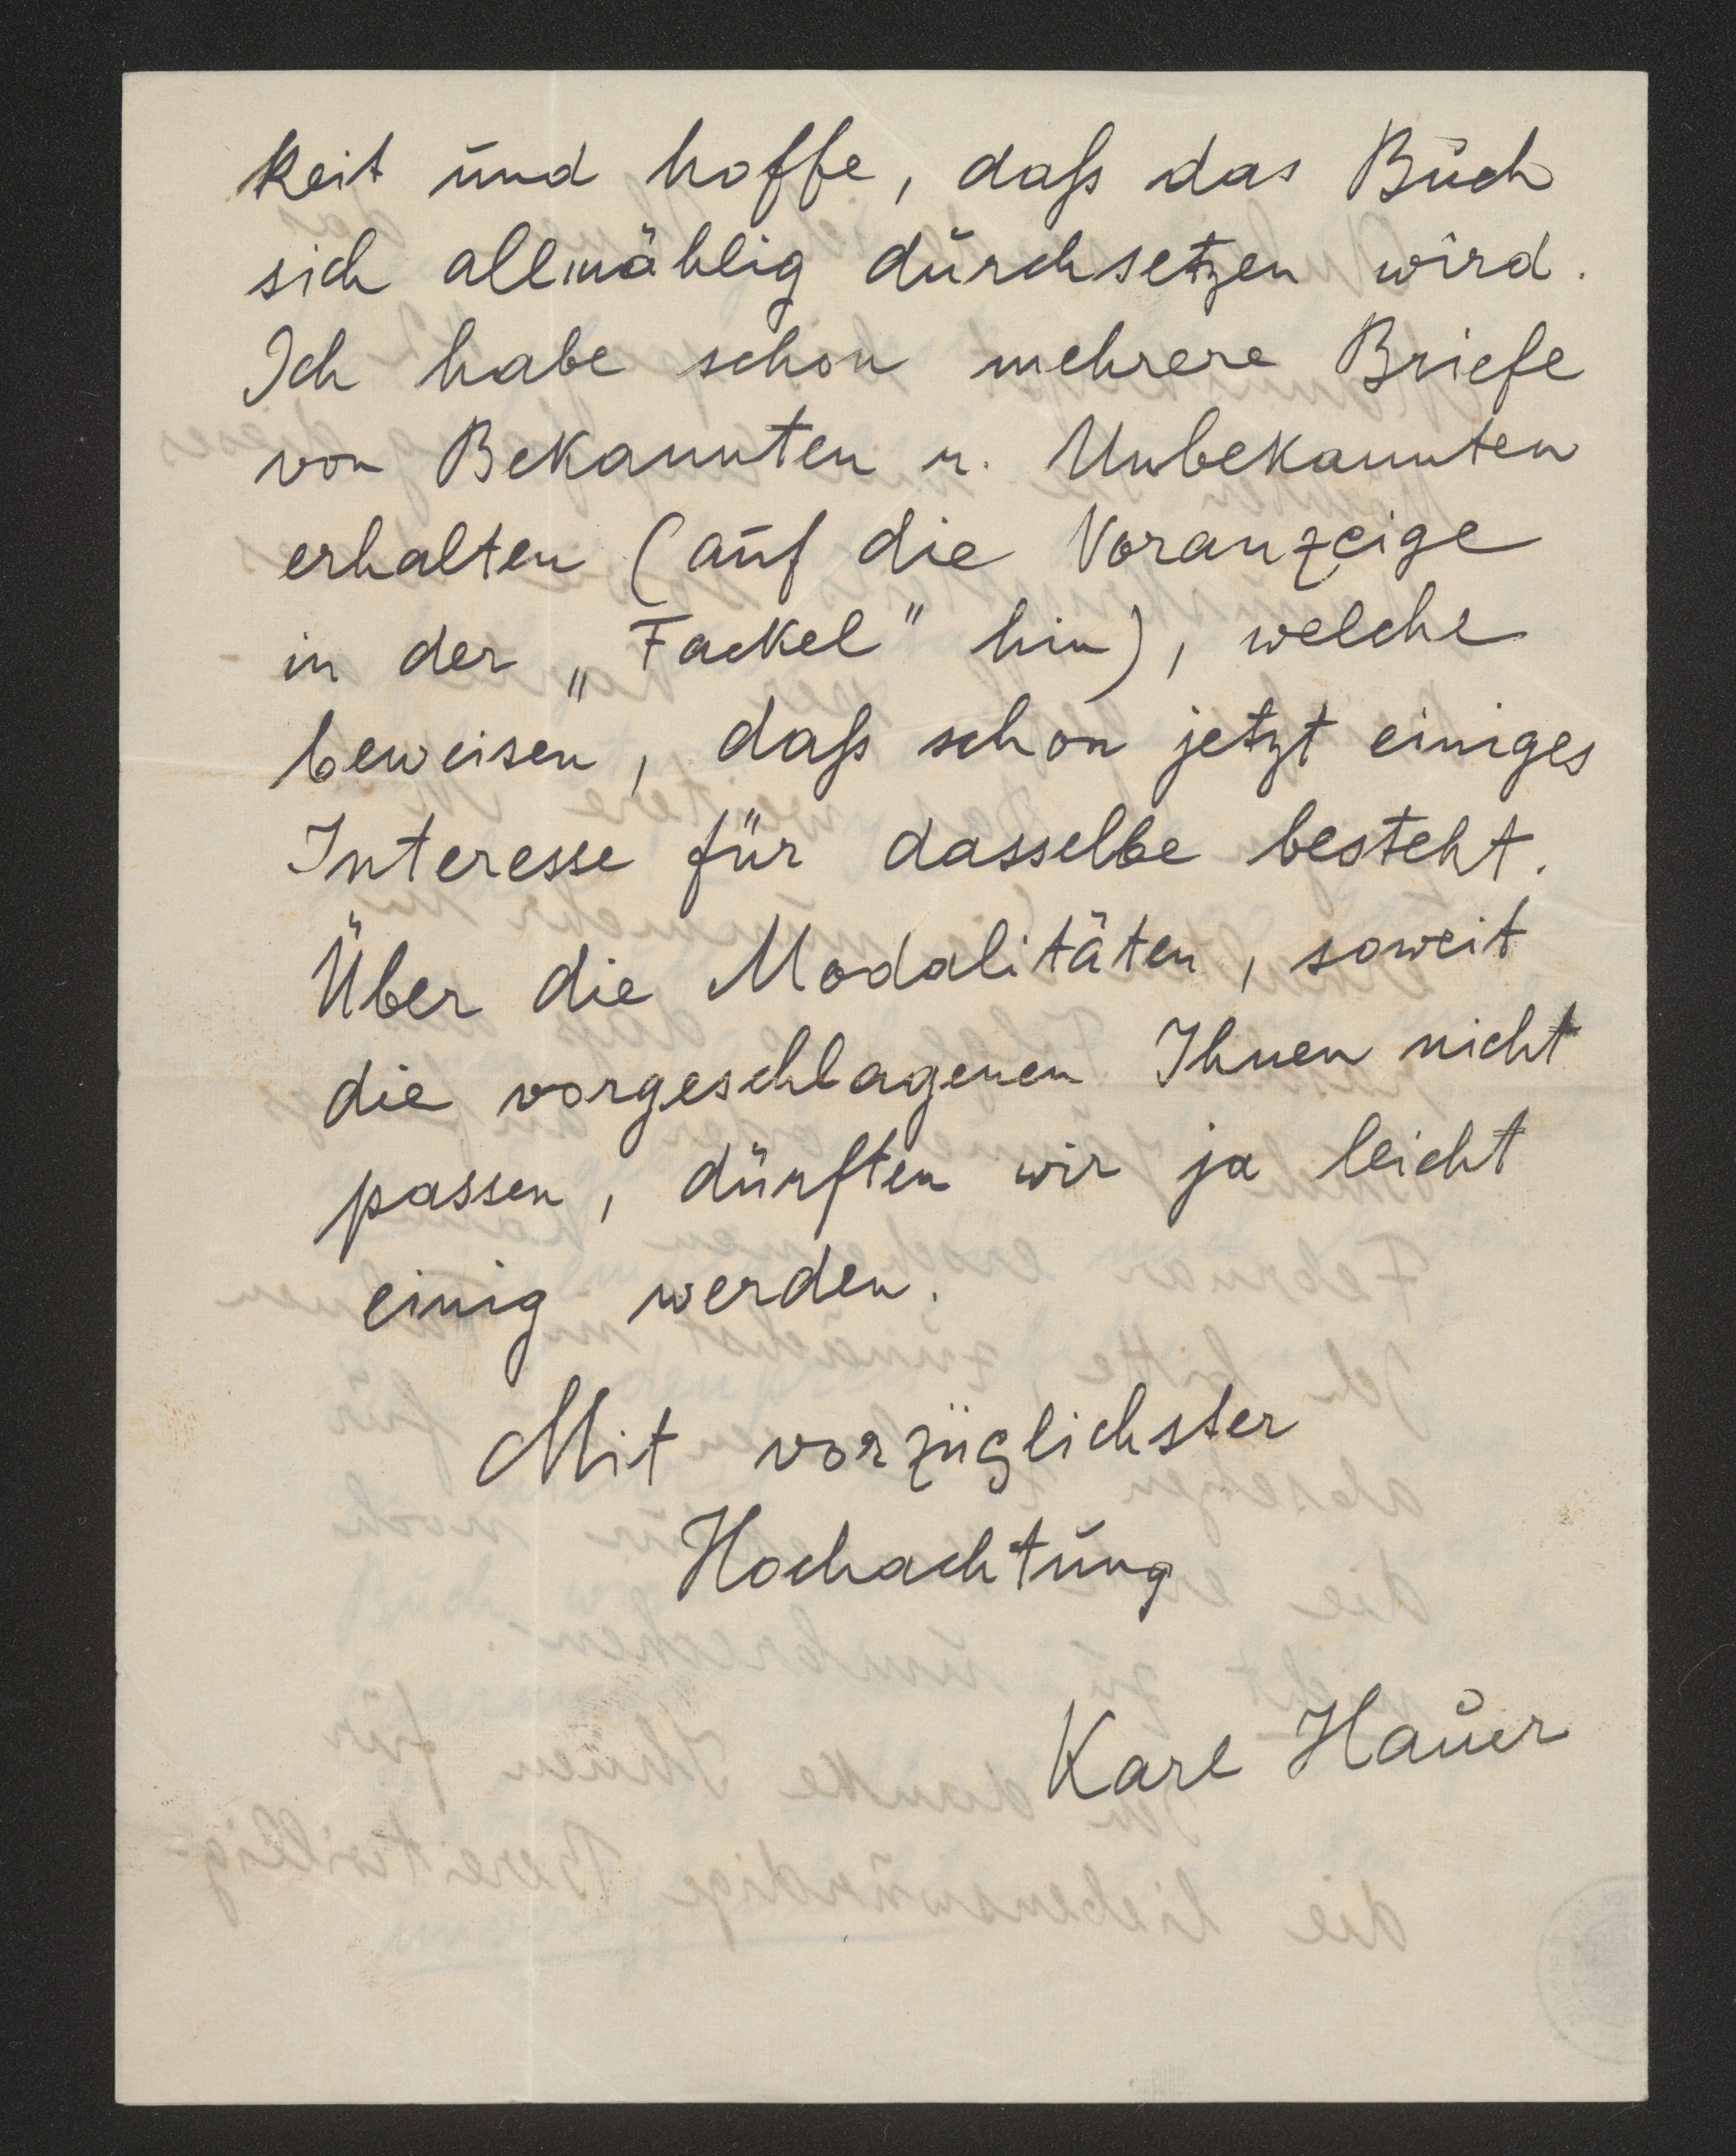 keit und hoffe, daß das Buch
sich allmählig durchsetzen wird.
Ich habe schon mehrere Briefe
von Bekannten u. Unbekannten
erhalten (auf die Voranzeige
in der „Fackel" hin), welche
beweisen, daß schon jetzt einiges
Interesse für dasselbe besteht.
Über die Modalitäten, soweit
die vorgeschlagenen Ihnen nicht
passen, dürften wir ja leicht
einig werden.
Mit vorzüglichster
Hochachtung
Karl Hauer